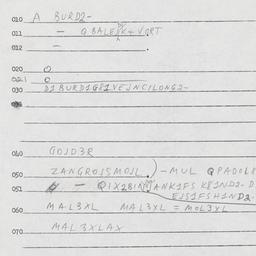 010 A BURD2-
011 - QBALEJK + VQRT
012 -
020
021
030 D1BURD1G81VEJNCILONG2-
040 GOJD3R
050 ZANGROJSMOJL. -MUL QPADOL8
051 - QIX281N JANK1FS K81ND2. D
EJS1FSH1ND2.
060 MAL3XL MAL3XL = MOL3XL
070 MAL3XLAX